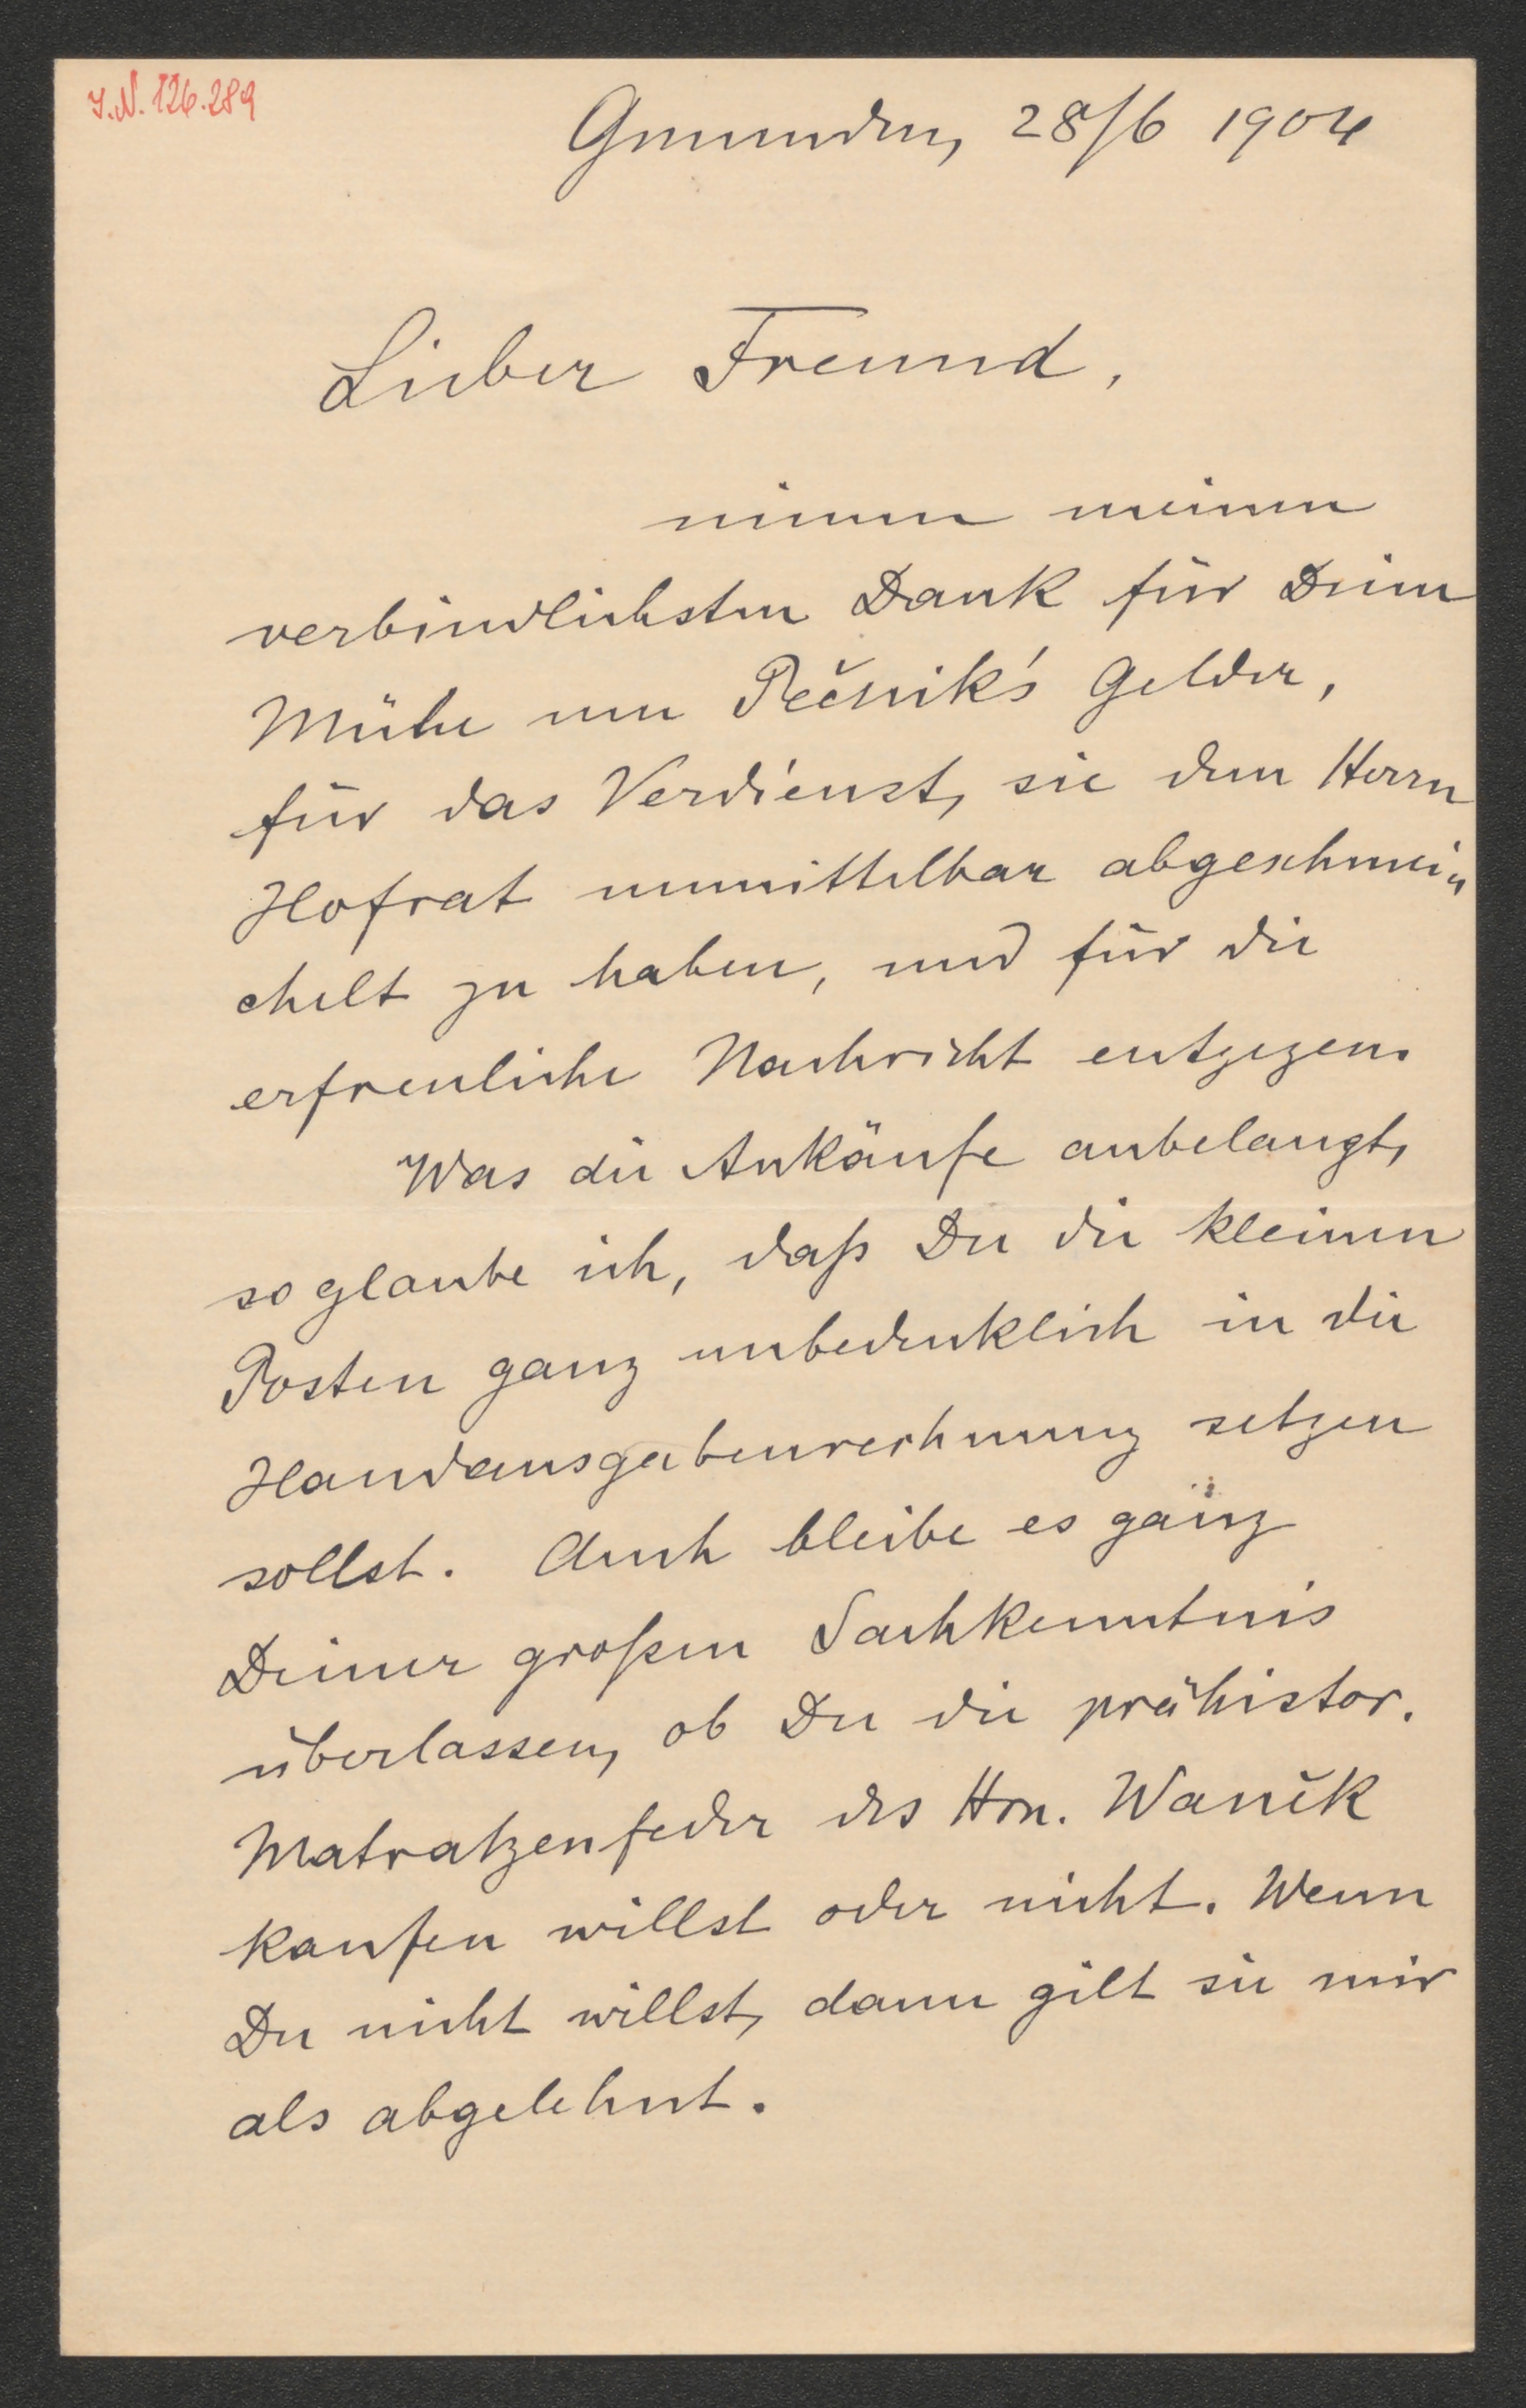 J.N. 126.289
Gmunden, 28/6 1904
Lieber Freund,
nimm meinen
verbindlichsten Dank für Deine
Mühe um Pečnik's Gelder,
für das Verdienst, sie dem Herrn
Hofrat unmittelbar abgeschmei„
chelt zu haben, und für die
erfreuliche Nachricht entgegen.
Was die Ankäufe anbelangt,
so glaube ich, daß Du die kleinen
Posten ganz unbedenklich in die
Handausgabenrechnung setzen
sollst. Auch bleibe es ganz
Deiner großen Sachkenntnis
überlassen, ob Du die prähistor.
Matratzenfeder des Hrn. Wanĕk
kaufen willst oder nicht. Wenn
Du nicht willst, dann gilt sie mir
als abgelehnt.